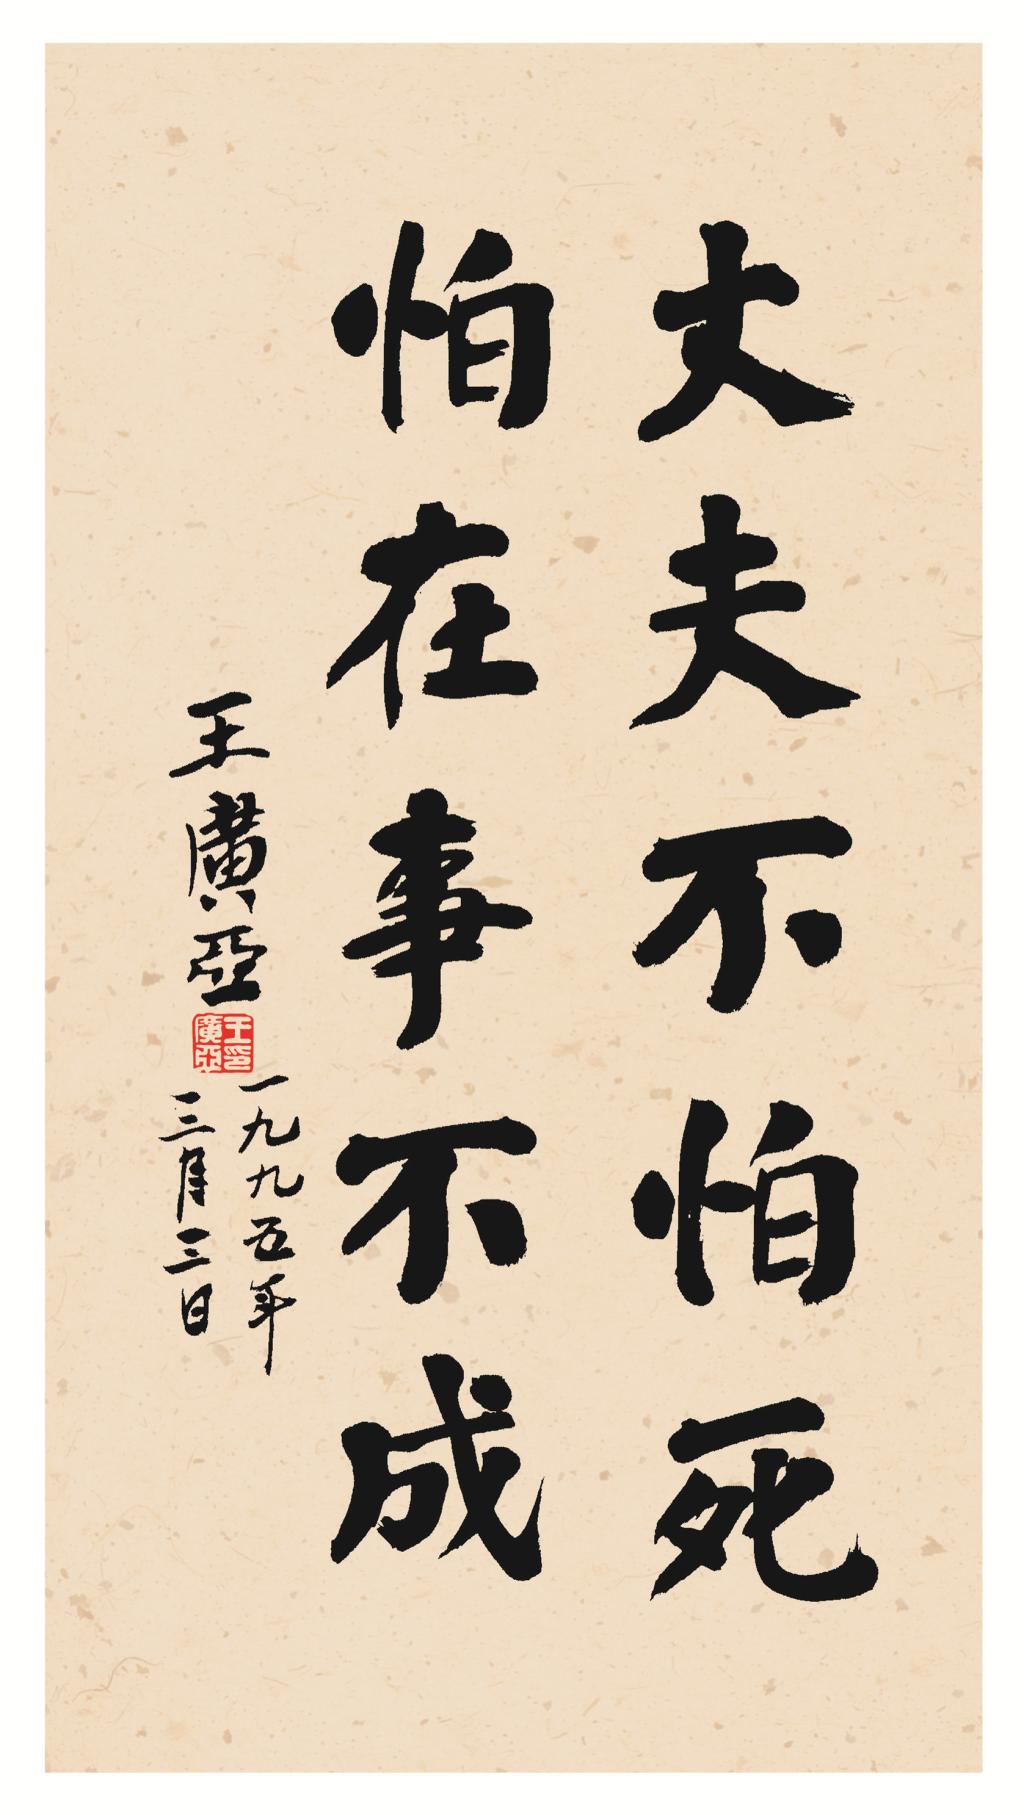 丈夫不怕死
怕在事不成
王廣亞
王印廣亞
一九九五年
三月三日